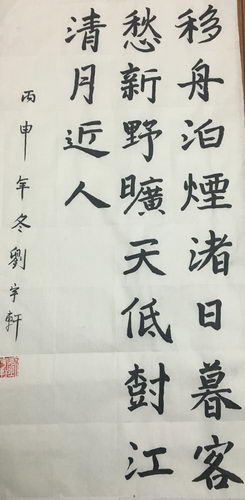 移舟泊煙渚日暮客
愁新野曠天低樹江
清月近人
丙申年冬劉宇軒